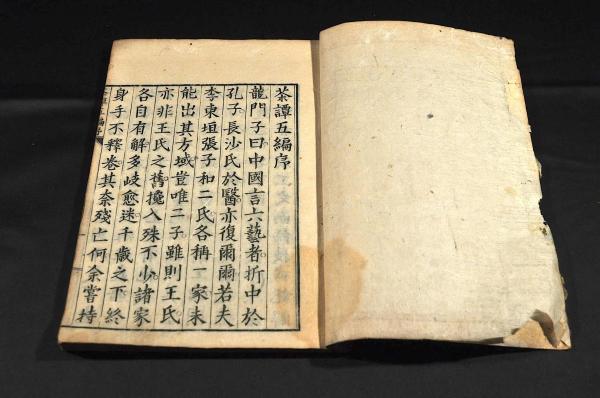 茶譚五編序
龍門子曰中國言六藝者折中於
孔子長沙氏於醫亦復爾爾若夫
李東垣張子和二氏各稱一家未
能出其方域豈唯二子雖則王氏
亦非王氏之舊攙入殊不少諸家
各自有解多歧愈迷千歲之下終
身手不釋卷其奈殘亡何余嘗持